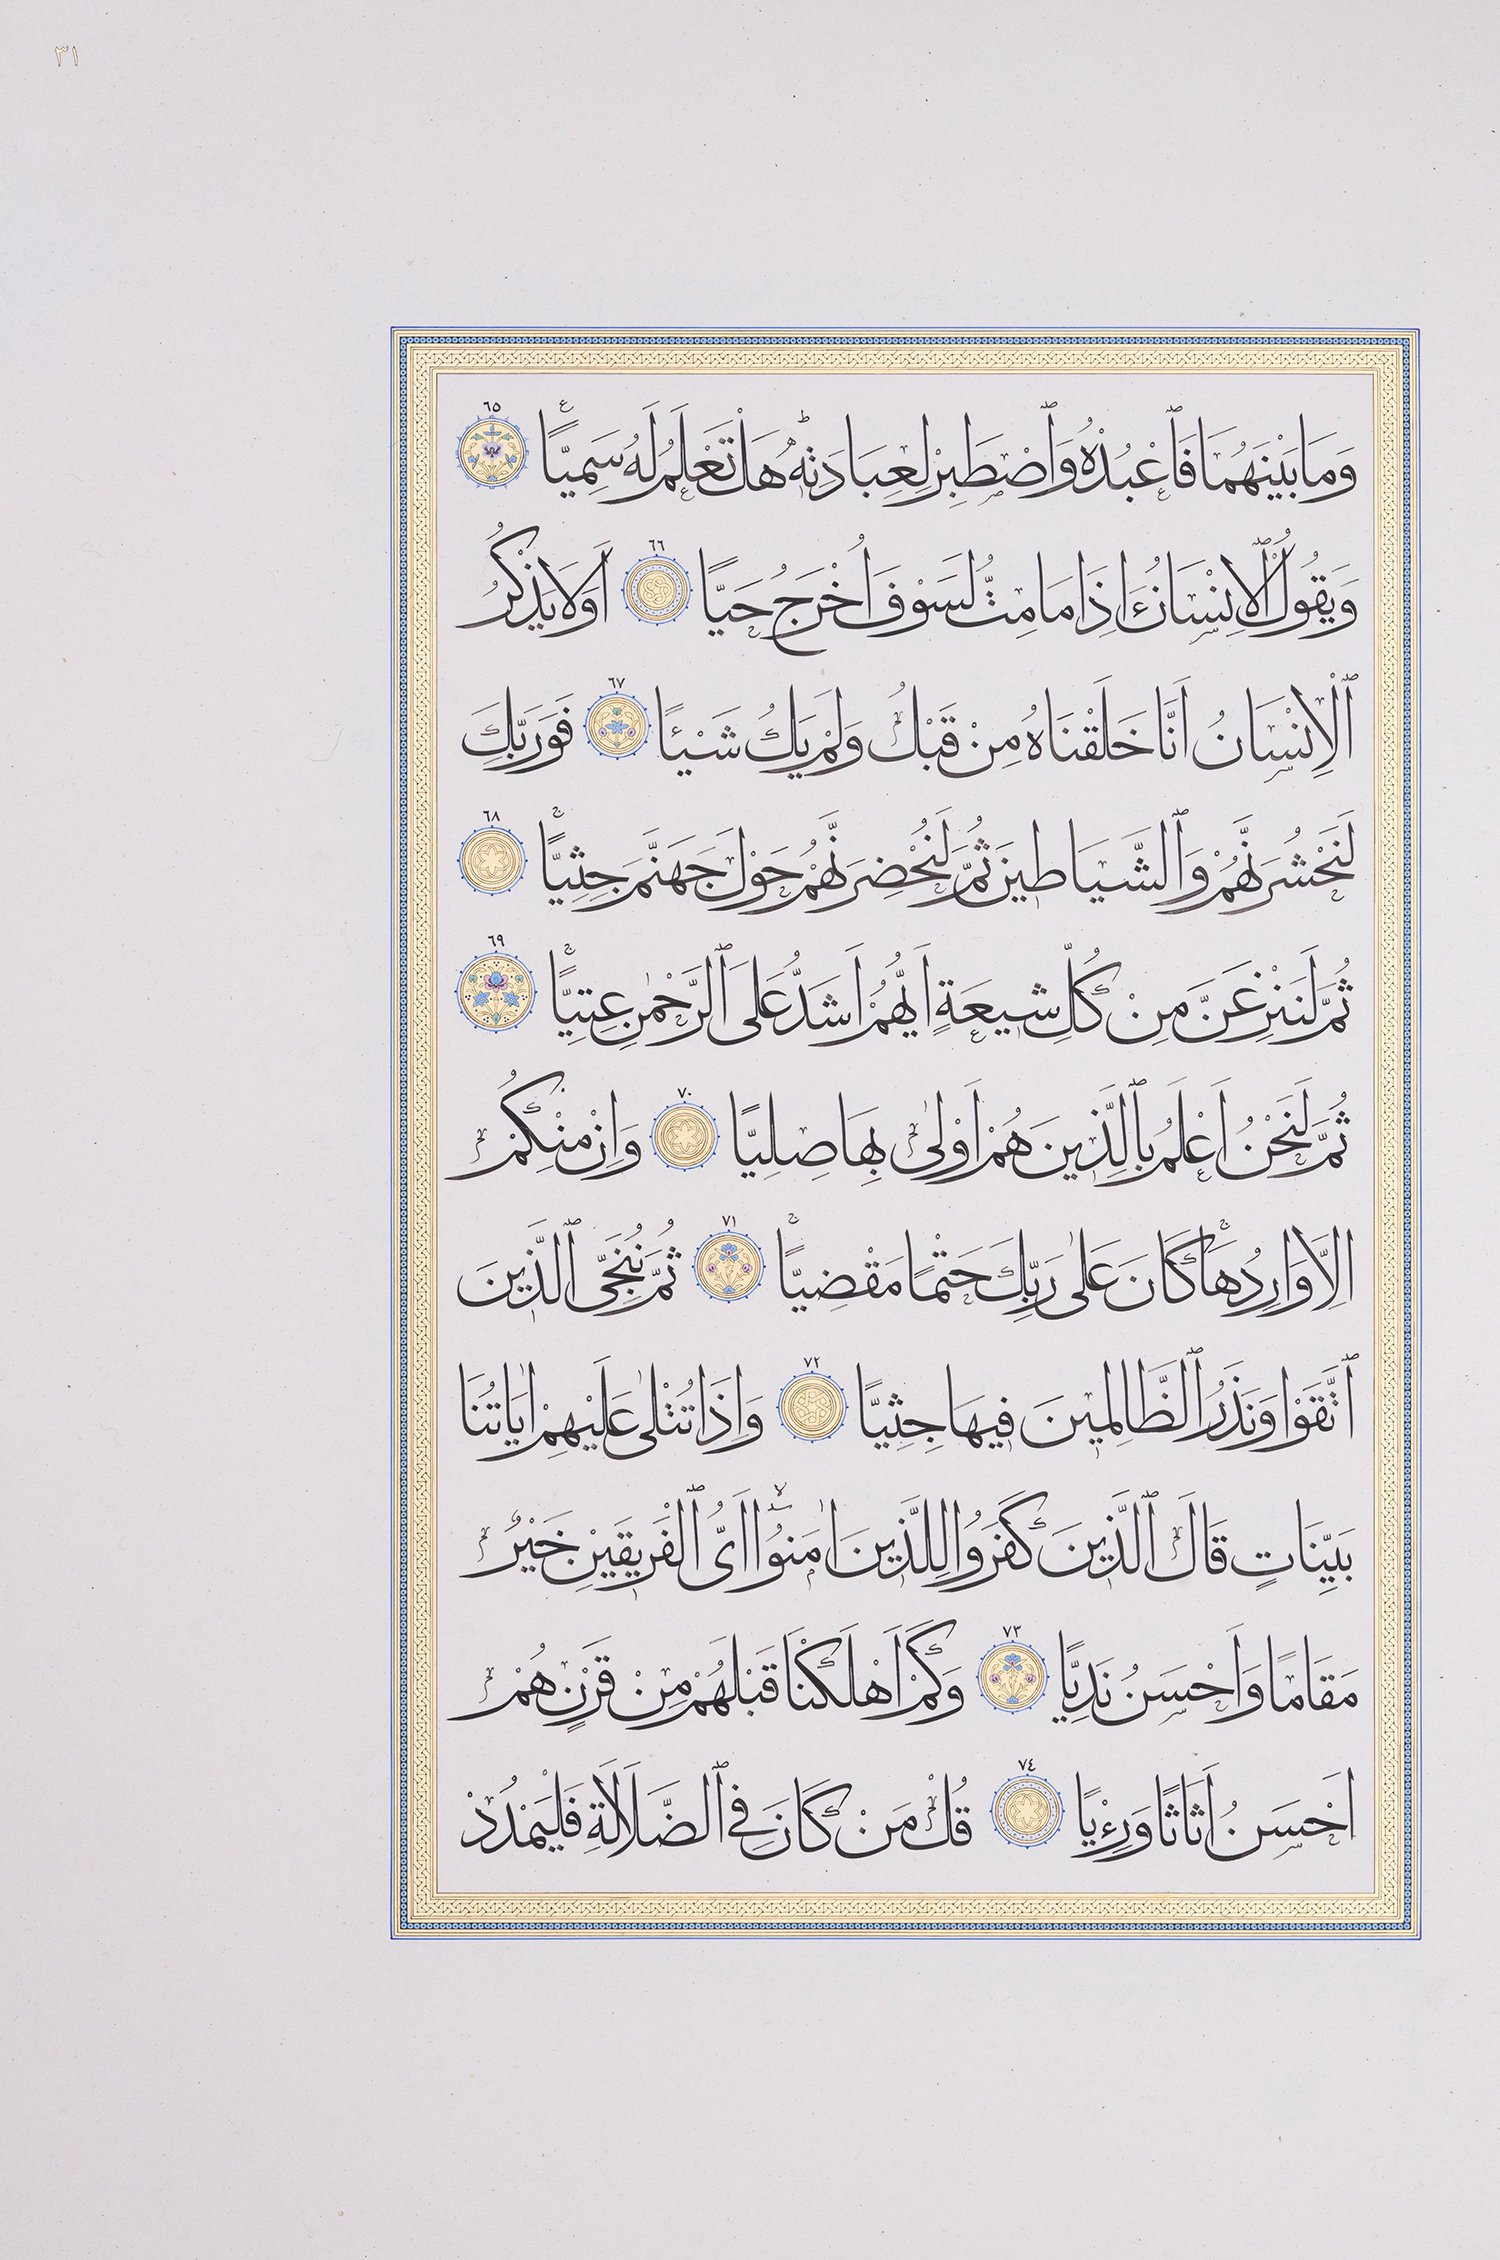 ٣١
وَمَا بَيْنَهُمَا فَٱعْبُدْهُ وَٱصْطَبِرْ لِعِبَادَتِهٖۜ هَلْ تَعْلَمُ لَهُ سَمِيًّاۚ ٦٥
وَيَقُولُ ٱلْاِنْسَانُ ءَاِذَا مَا مِتُّ لَسَوْفَ اُخْرَجُ حَيًّا ٦٦ اَوَلَا يَذْكُرُ
ٱلْاِنْسَانُ اَنَّا خَلَقْنَاهُ مِنْ قَبْلُ وَلَمْ يَكُ شَيْـًٔا ٦٧ فَوَرَبِّكَ
لَنَحْشُرَنَّهُمْ وَٱلشَّيَاطِينَ ثُمَّ لَنُحْضِرَنَّهُمْ حَوْلَ جَهَنَّمَ جِثِيًّاۚ ٦٨
ثُمَّ لَنَنْزِعَنَّ مِنْ كُلِّ شِيعَةٍ اَيُّهُمْ اَشَدُّ عَلَى ٱلرَّحْمٰنِ عِتِيًّاۚ ٦٩
ثُمَّ لَنَحْنُ اَعْلَمُ بِٱلَّذِينَ هُمْ اَوْلٰى بِهَا صِلِيًّا ٧٠ وَاِنْ مِنْكُمْ
اِلَّا وَارِدُهَاۚ كَانَ عَلٰى رَبِّكَ حَتْمًا مَقْضِيًّاۚ ٧١ ثُمَّ نُنَجِّى ٱلَّذِينَ
ٱتَّقَوْا وَنَذَرُ ٱلظَّالِمِينَ فِيهَا جِثِيًّا ٧٢ وَاِذَا تُتْلٰى عَلَيْهِمْ اٰيَاتُنَا
بَيِّنَاتٍ قَالَ ٱلَّذِينَ كَفَرُوا لِلَّذِينَ اٰمَنُٓواۙ اَىُّ ٱلْفَرِيقَيْنِ خَيْرٌ
مَقَامًا وَاَحْسَنُ نَدِيًّا ٧٣ وَكَمْ اَهْلَكْنَا قَبْلَهُمْ مِنْ قَرْنٍ هُمْ
اَحْسَنُ اَثَاثًا وَرِءْيًا ٧٤ قُلْ مَنْ كَانَ فِى ٱلضَّلَالَةِ فَلْيَمْدُدْ